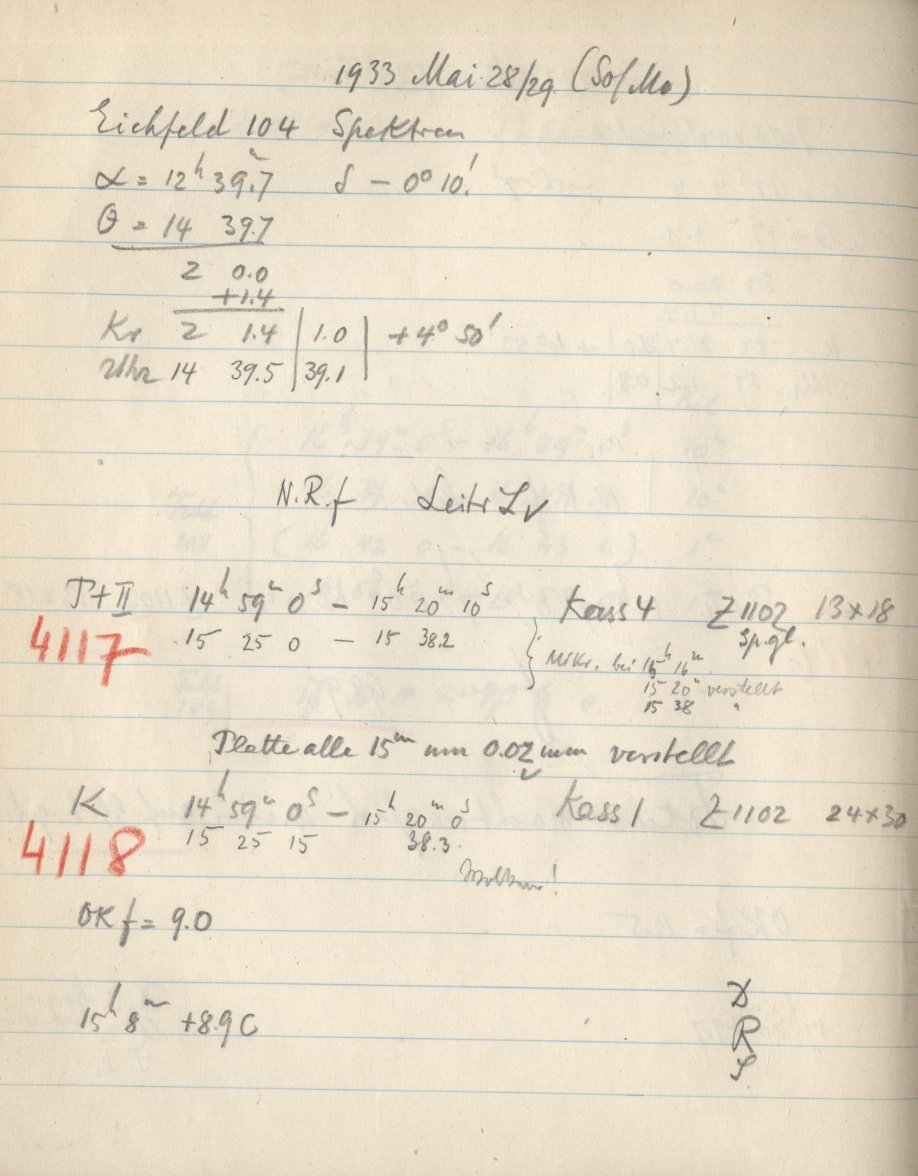 1933 Mai 28/29 (So/Mo)
Eichfeld 104 Spektren
α = 12h 39.m7 δ - 0° 10.'
θ = 14 39.7
2 0.0
+1.4
Kr 2 1.4 | 1.0 | +4° 50'
Uhr 14 39.5 | 39.1 |
N.R.f Leitr L v
T+II 14h 59m 0s - 15h 20m 10s Kass 4 Z 1102 13x18
4117 15 25 0 - 15 38.2 Sp.gl.
Mikr. bei 15h 16m
15 20m verstellt
15 38 "
Platte alle 15m um 0.02 mm verstellt
K 14h 59m 0s - 15h 20m 0s Kass 1 Z 1102 24x30
4118 15 25 15 38.3
Wolken!
OK f = 9.0
15h 8m +8.9 C
R